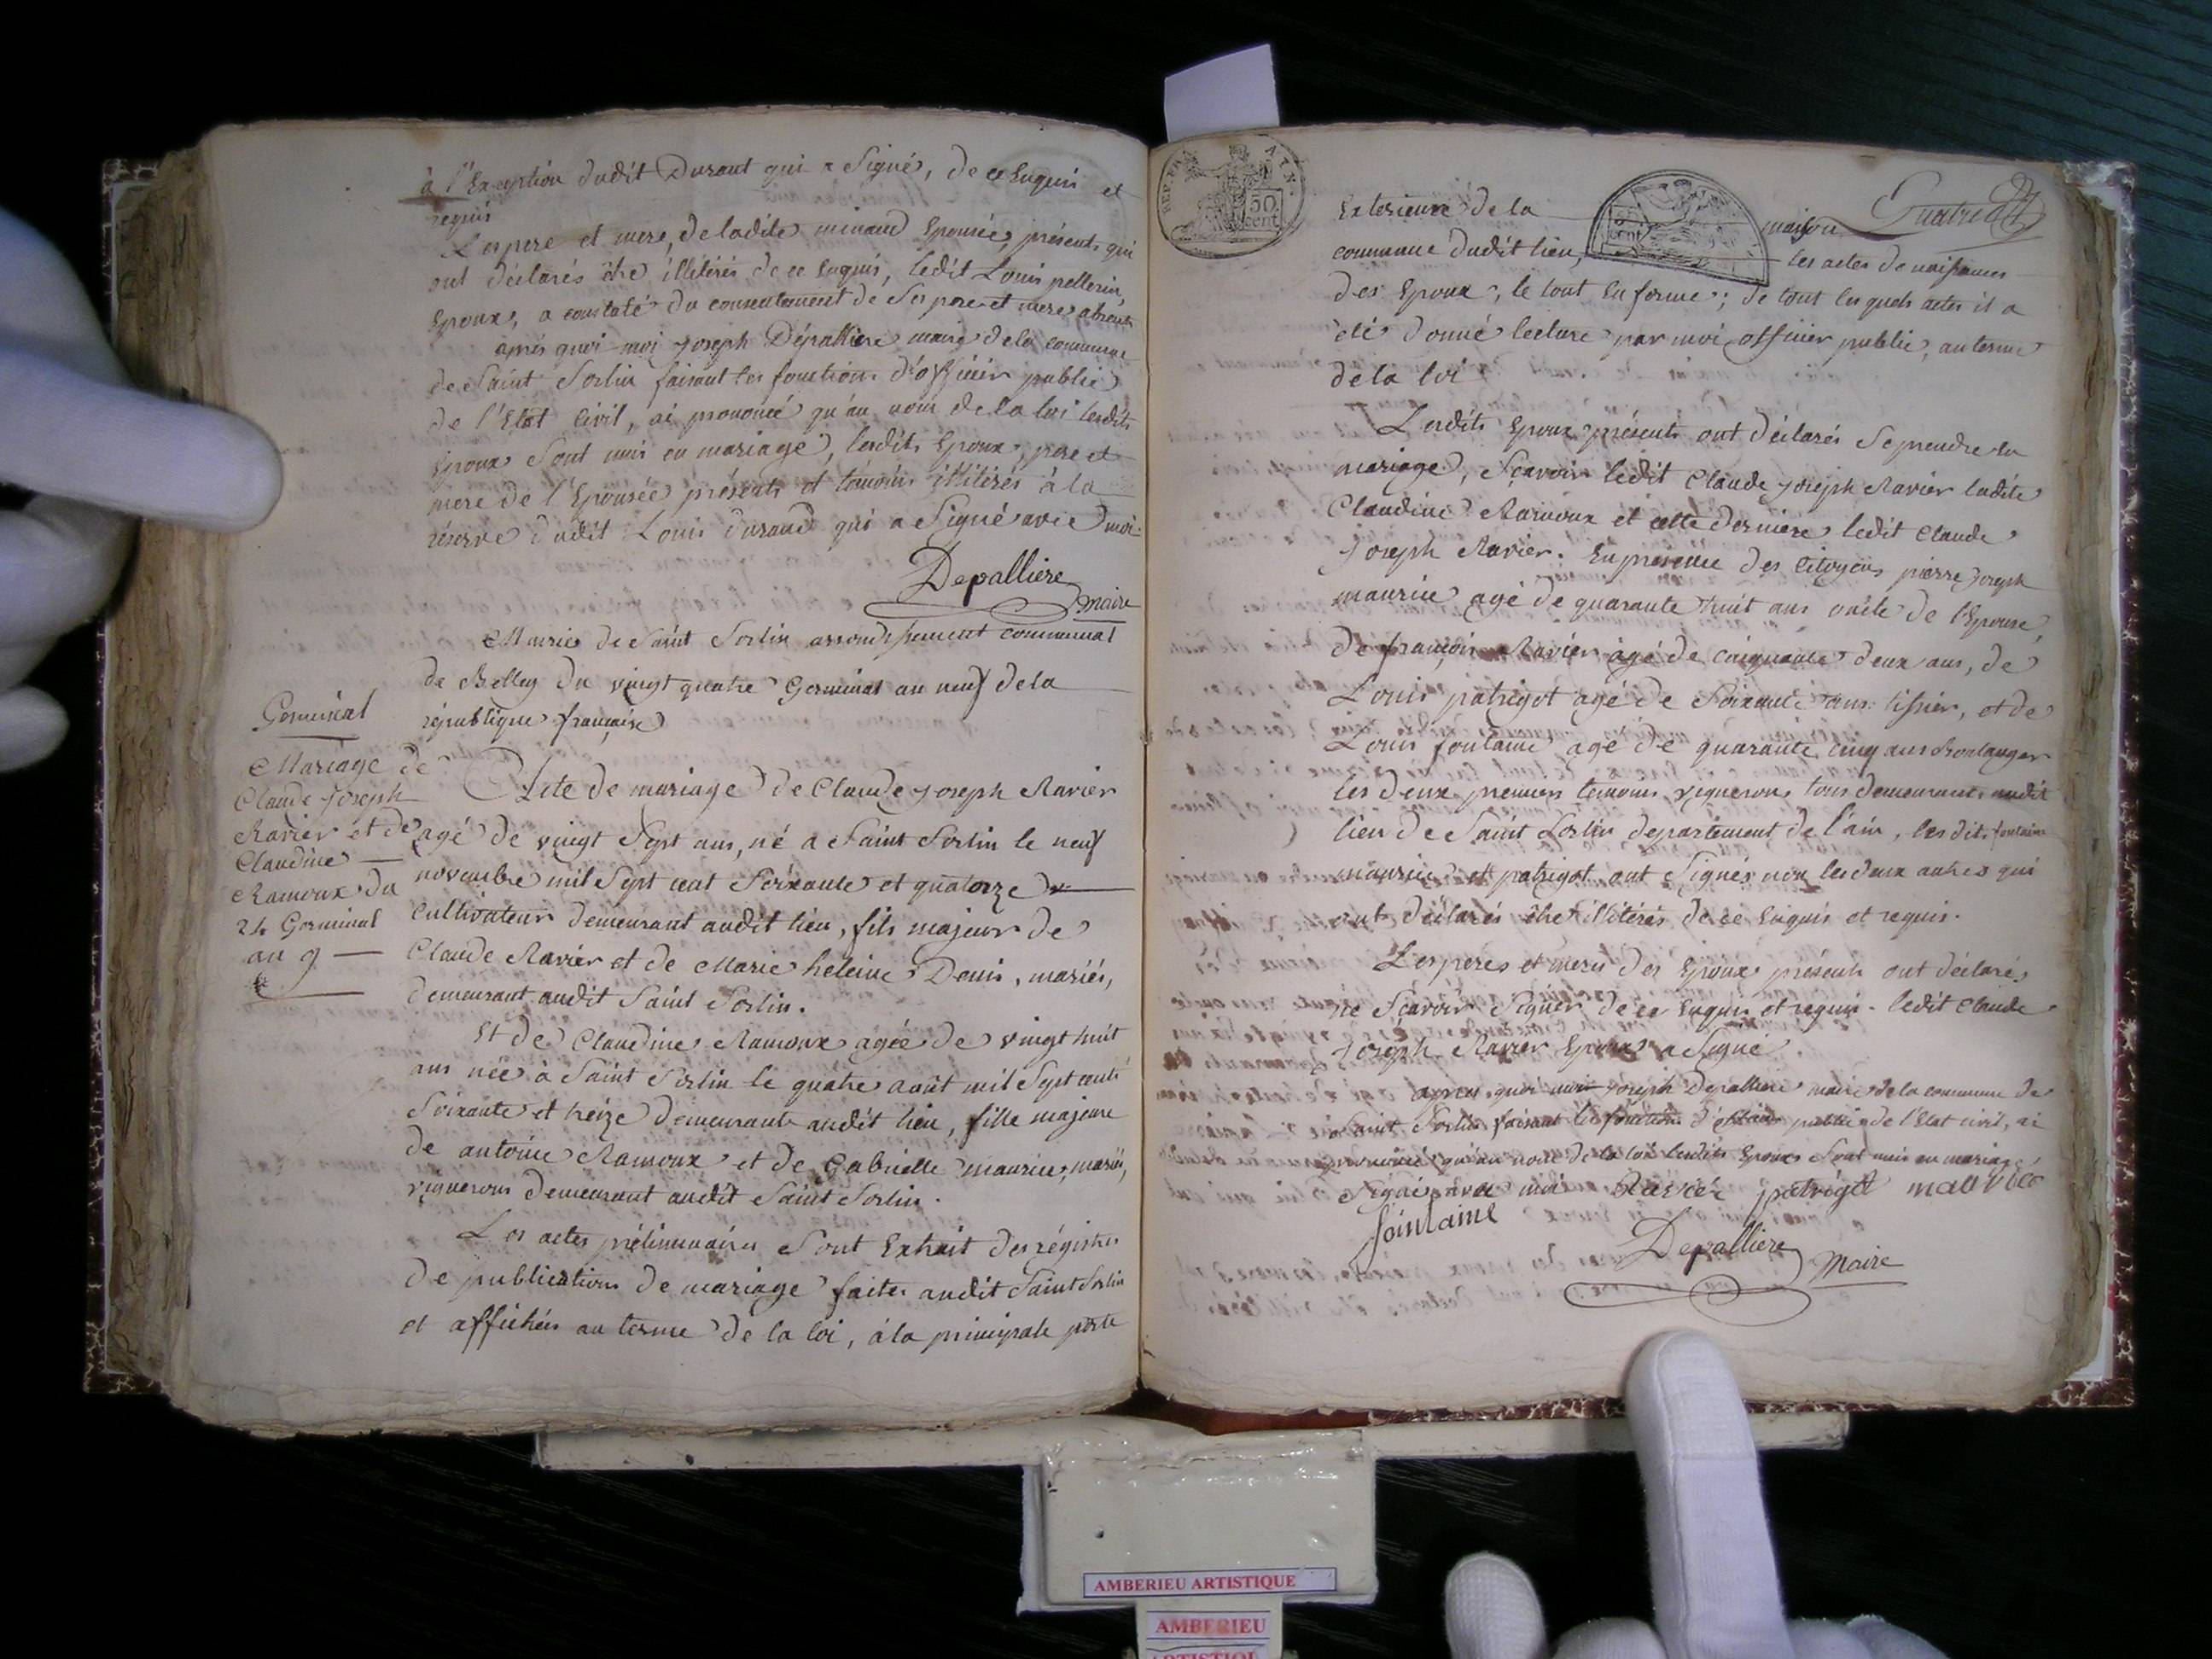 à l'Exception dudit Durant qui a Signé, de ce Enquis et
requis
Les pere et mere, de ladite minand Epousée, présents qui
ont déclarés être illitérés de ce Enquis, ledit Louis pellerin,
Epoux, a constaté du consentement de Ses pere et mere absents
après quoi moi Joseph Dépalliere maire de la commune
de Saint Sorlin faisant les fonctions d'officier public
de l'Etat Civil, ai prononcé qu'au nom de la loi lesdits
Epoux Sont unis en mariage, lesdits Epoux, pere et
mere de l'Epousée présents et témoins illitérés à la
réserve dudit Louis durand qui a Signé avec moi.
Depalliere
maire
Mairie de Saint Sorlin arrondissement communal
de Belley du vingt quatre Germinal an neuf de la
république française
Germinal
Mariage de
Claude Joseph
Ravier et de
Claudine
Ramoux du
24 Germinal
an 9
Acte de mariage de Claude Joseph Ravier
agé de vingt Sept ans, né a Saint Sorlin le neuf
novembre mil Sept cent Soixante et quatorze
Cultivateur demeurant audit lieu, fils majeur de
Claude Ravier et de Marie heleine Denis, mariés,
demeurant audit Saint Sorlin.
Et de Claudine Ramoux agée de vingt huit
ans née à Saint Sorlin le quatre août mil Sept cent
Soixante et treize demeurante audit lieu, fille majeure
de antoine Ramoux et de Gabrielle maurice, mariés,
vignerons demeurant audit Saint Sorlin.
Les actes préliminaires Sont Extrait des régistres
de publications de mariage faites audit Saint Sorlin
et affichées au terme de la loi, à la principale porte
REP. FRA. ATR.
50
cent.
Exterieure de la maison
commune dudit lieu, les actes de naissances
des Epoux, le tout En forme; de tout lesquels actes il a
été donné lecture par moi officier public, au terme
de la loi
Lesdits Epoux présents ont déclarés Se prendre en
mariage, Sçavoir ledit Claude Joseph Ravier ladite
Claudine Ramoux et cette derniere ledit Claude
Joseph Ravier. En présence des Citoyens pierre Joseph
maurice agé de quarante huit ans oncle de l'Epouse,
de françois Ravier agé de cinquante deux ans, de
Louis patrigot agé de Soixante ans tissier, et de
Louis fontaine agé de quarante cinq ans Boulanger
les deux premiers temoins vignerons tous demeurants audit
lieu de Saint Sorlin departement de l'ain, lesdits fontaine
maurice et patrigot ont Signés non les deux autres qui
ont déclarés être illitérés de ce Enquis et requis.
Les peres et meres des Epoux présents ont déclarés
ne Sçavoir Signer de ce Enquis et requis. ledit Claude
Joseph Ravier Epoux a Signé
après quoi moi Joseph Depalliere maire de la commune de
Saint Sorlin faisant les fonctions d'officier public de l'Etat civil, ai
prononcé qu'au nom de la loi lesdits Epoux Sont unis en mariage
Signé avec moi Ravier patrigot maurice
fointaine
Depalliere
Maire
AMBERIEU ARTISTIQUE
AMBERIEU
ARTISTIQUE